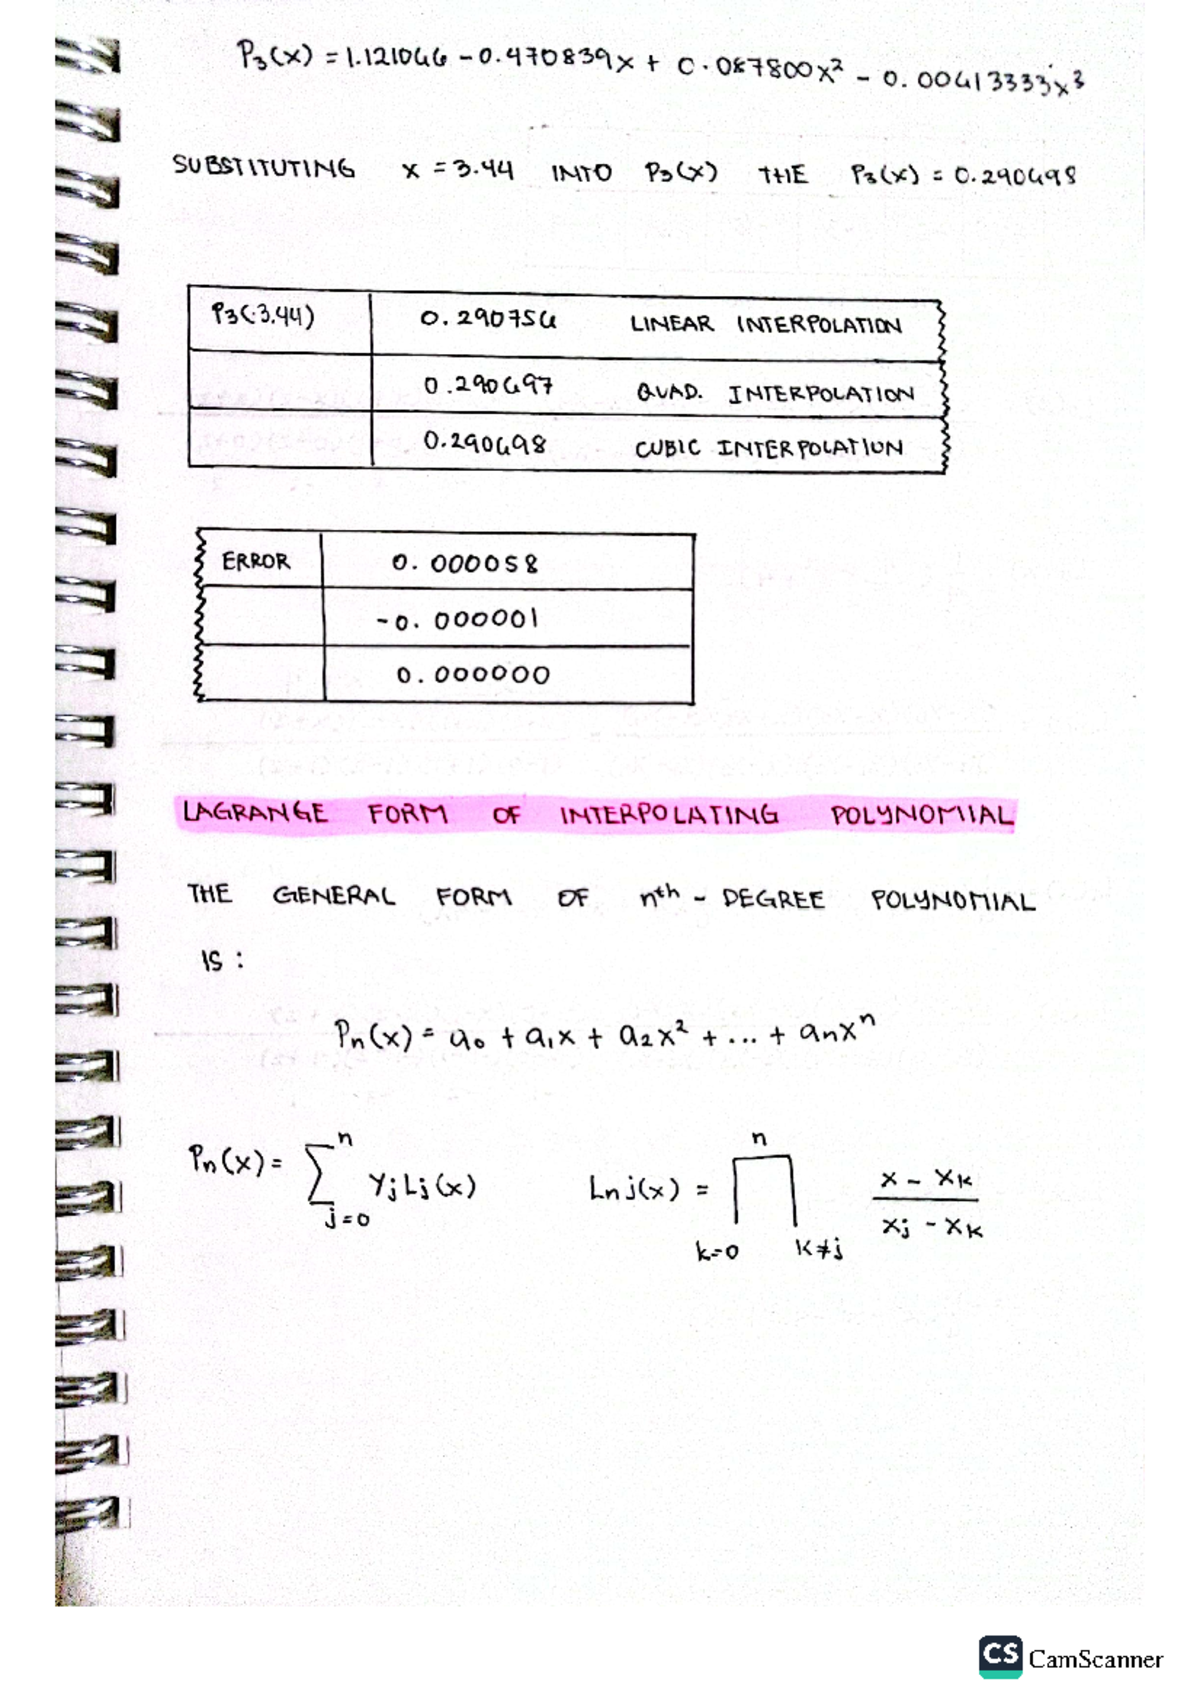 P₃(x) = 1.121066 - 0.470839x + 0.087800x² - 0.00613333x³
SUBSTITUTING x = 3.44 INTO P₃(x) THE P₃(x) = 0.290698
P₃(3.44) 0.290756 LINEAR INTERPOLATION
0.290697 QUAD. INTERPOLATION
0.290698 CUBIC INTERPOLATION
ERROR 0.000058
-0.000001
0.000000
LAGRANGE FORM OF INTERPOLATING POLYNOMIAL
THE GENERAL FORM OF nth - DEGREE POLYNOMIAL
IS :
Pn(x) = a₀ + a₁x + a₂x² + ... + anxⁿ
Pn(x) = ∑ⁿj=0 YjLj(x) Lnj(x) = ∏ⁿk=0 k≠j (x - xk)/(xj - xk)
CS CamScanner